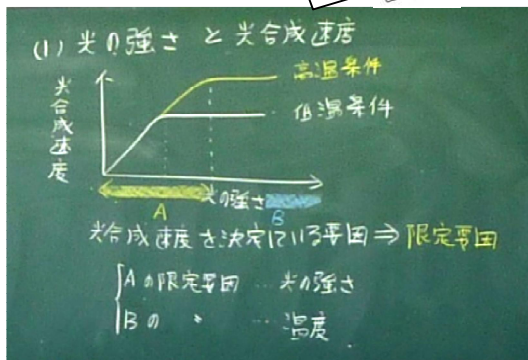 (1) 光の強さ と 光合成速度
高温条件
低温条件
光合成速度
光の強さ
A
B
光合成速度を決定している要因⇒限定要因
Aの限定要因 … 光の強さ
Bの 〃 … 温度